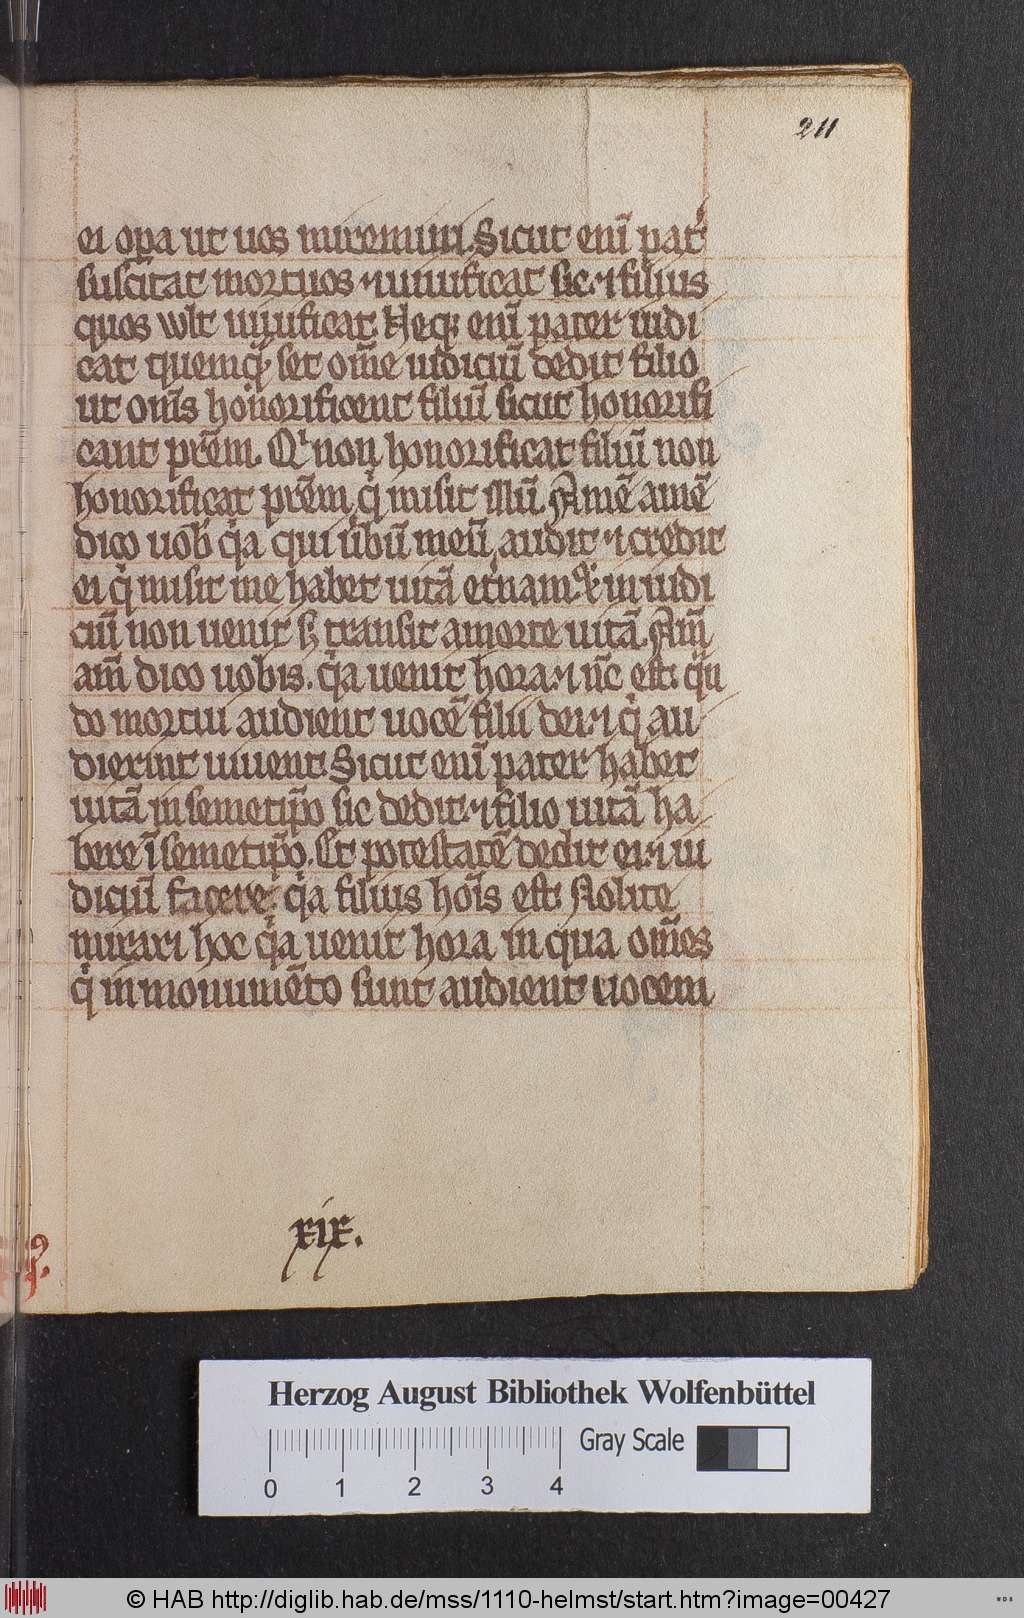 211
ei op̄a ut uos miremini. Sicut enī pat̉
suscitat mortuos ⁊ uiuificat sic ⁊ filius
quos wlt uiuificat. Neq; enī pater iudi
cat quemq̄ set om̄e iudiciū dedit filio
ut om̄s honorificent filiū sicut honorifi
cant pr̄em. Qⁱ non honorificat filiū non
honorificat pr̄em qⁱ misit illū. Amē amē
dico uob̄ qⁱa qui ūbū meū audit ⁊ credit
ei qⁱ misit me habet uitā et̉nam ⁊ in iudi
ciū non uenit s; transit a morte uitā. Am̄
am̄ dico uobis. qⁱa uenit hora ⁊ nc̄ est qn̄
do mortui audient uocē filii dei ⁊ qⁱ au
dierint uiuent. Sicut enī pater habet
uitā in semetip̄o sic dedit ⁊ filio uitā ha
bere ī semetip̄o. Et potestatē dedit ei ⁊ iu
diciū facere qⁱa filius hoīs est. Nolite
mirari hoc qⁱa uenit hora in qua om̄es
qⁱ in monumēto sunt audient uocem
xix.
Herzog August Bibliothek Wolfenbüttel
Gray Scale
0 1 2 3 4
© HAB http://diglib.hab.de/mss/1110-helmst/start.htm?image=00427